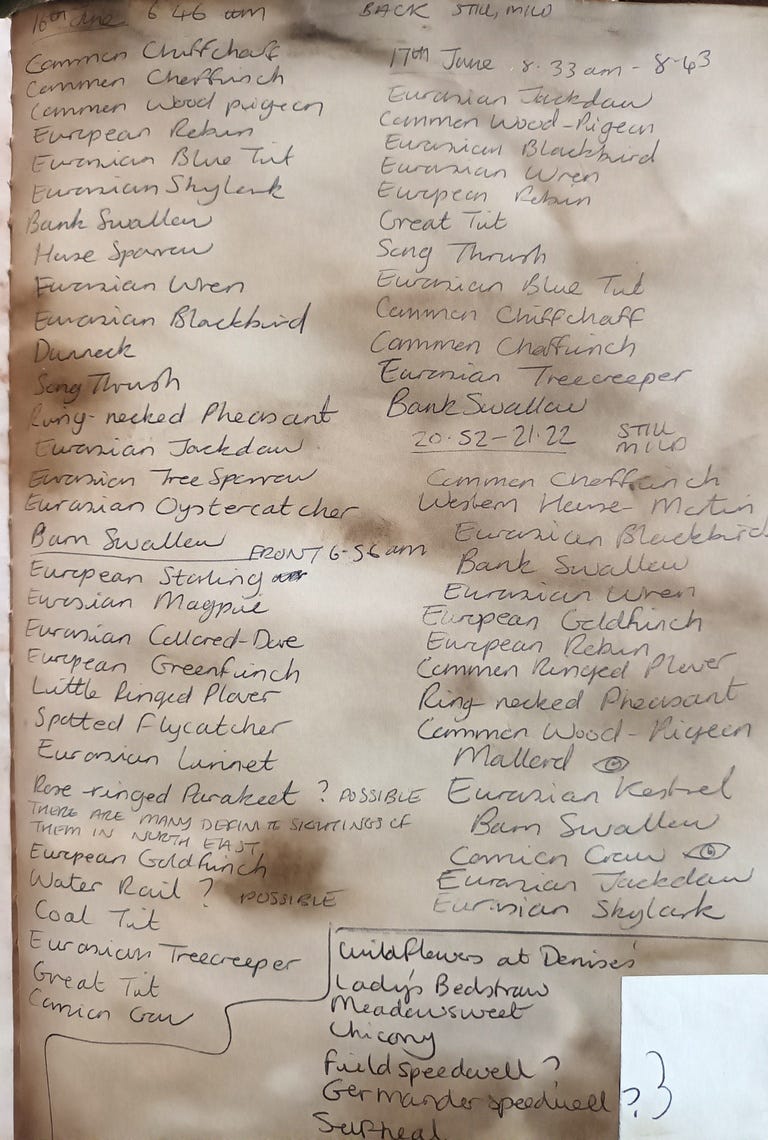 16th June 6 46 am
BACK STILL, MILD
Common Chiffchaff
Common Chaffinch
Common Wood pigeon
European Robin
Eurasian Blue Tit
Eurasian Skylark
Bank Swallow
House Sparrow
Eurasian Wren
Eurasian Blackbird
Dunnock
Song Thrush
Ring-necked Pheasant
Eurasian Jackdaw
Eurasian Tree Sparrow
Eurasian Oystercatcher
Barn Swallow
FRONT 6-56 am
European Starling
Eurasian Magpie
Eurasian Collared-Dove
European Greenfinch
Little Ringed Plover
Spotted Flycatcher
Eurasian Linnet
Rose-ringed Parakeet ? POSSIBLE
THERE ARE MANY DEFINITE SIGHTINGS OF
THEM IN NORTH EAST.
European Goldfinch
Water Rail ? POSSIBLE
Coal Tit
Eurasian Treecreeper
Great Tit
Carrion Crow
17th June 8.33am - 8-43
Eurasian Jackdaw
Common Wood-Pigeon
Eurasian Blackbird
Eurasian Wren
European Robin
Great Tit
Song Thrush
Eurasian Blue Tit
Common Chiffchaff
Common Chaffinch
Eurasian Treecreeper
Bank Swallow
20.52-21.22 STILL
MILD
Common Chaffinch
Western House-Martin
Eurasian Blackbird
Bank Swallow
Eurasian Wren
European Goldfinch
European Robin
Common Ringed Plover
Ring necked Pheasant
Common Wood-Pigeon
Mallard
Eurasian Kestrel
Barn Swallow
Carrion Crow
Eurasian Jackdaw
Eurasian Skylark
Wildflowers at Denise's
Lady's Bedstraw
Meadowsweet
Chicory
Field speedwell ?
Germander speedwell ? }
Selfheal